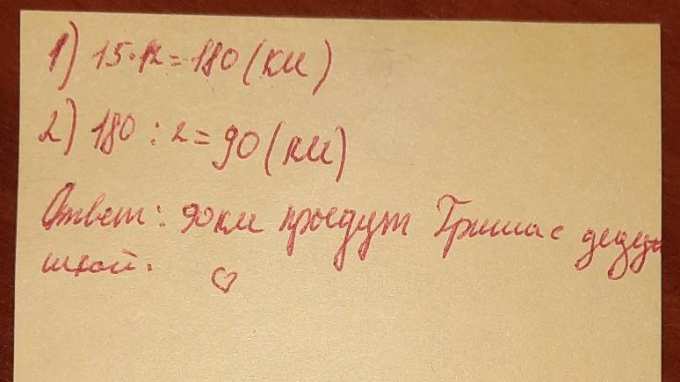 1) 15·12=180 (км)
2) 180 : 2=90 (км)
Ответ: 90км проедут Гриша с дедуш
шкой.